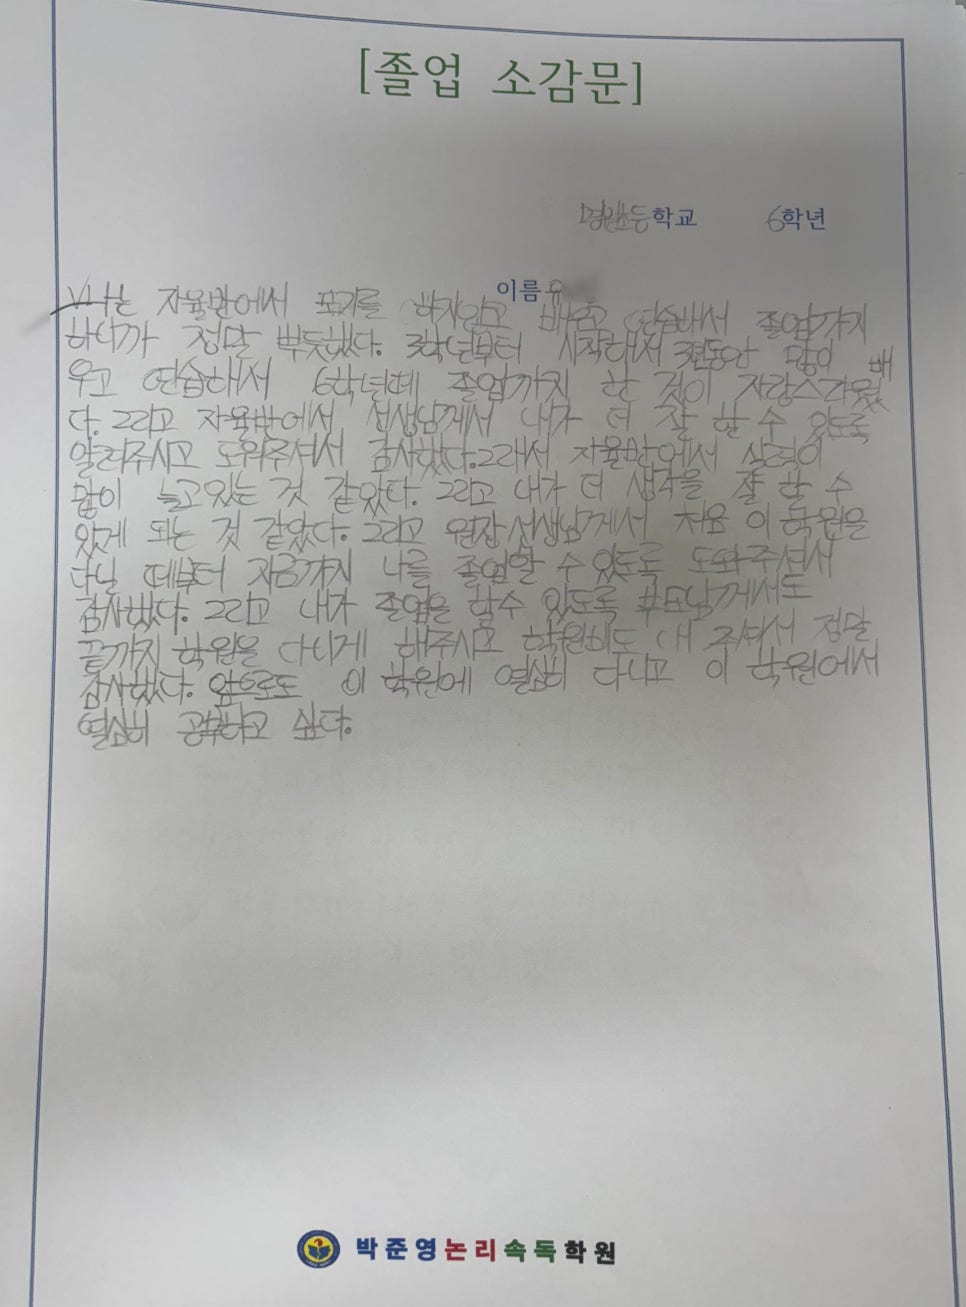 [졸업 소감문]
초등학교 6학년
이름 유
나는 자율반에서 포기를 하지않고 배우고 연습해서 졸업까지
하니까 정말 뿌듯했다. 3학년부터 시작해서 3년동안 많이 배
우고 연습해서 6학년때 졸업까지 한 것이 자랑스러웠
다. 그리고 자율반에서 선생님께서 내가 더 잘 할 수 있도록
알려주시고 도와주셔서 감사했다. 그래서 자율반에서 실력이
많이 늘고있는 것 같았다. 그리고 내가 더 생각을 잘 할 수
있게 되는 것 같았다. 그리고 원장선생님께서 처음 이 학원을
다닐 때부터 지금까지 나를 졸업할 수 있도록 도와주셔서
감사했다. 그리고 내가 졸업을 할수 있도록 부모님께서도
끝까지 학원을 다니게 해주시고 학원비도 내 주셔서 정말
감사했다. 앞으로도 이 학원에 열심히 다니고 이 학원에서
열심히 공부하고 싶다.
박준영논리속독학원